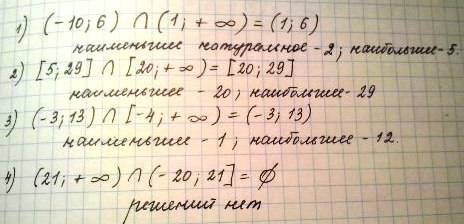 1) (-10; 6) ∩ (1; + ∞) = (1; 6)
наименьшее натуральное - 2; наибольшее - 5.
2) [5; 29] ∩ [20; + ∞) = [20; 29]
наименьшее - 20; наибольшее - 29
3) (-3; 13) ∩ [-4; + ∞) = (-3; 13)
наименьшее - 1; наибольшее - 12.
4) (21; + ∞) ∩ (-20; 21] = ∅
решений нет